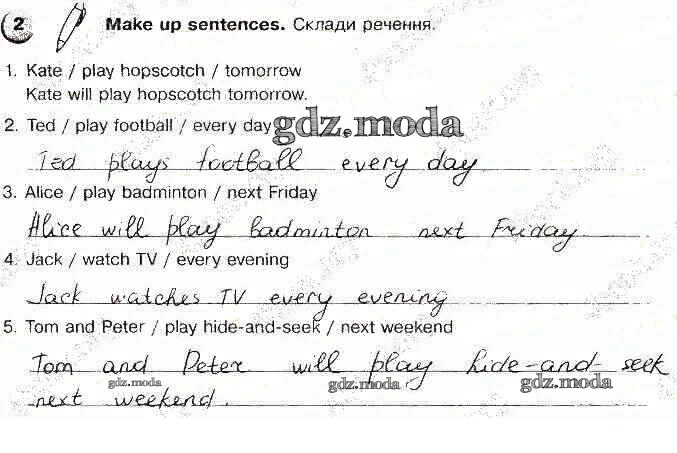 2 Make up sentences. Склади речення.
1. Kate / play hopscotch / tomorrow
Kate will play hopscotch tomorrow.
2. Ted / play football / every day gdz.moda
Ted plays football every day
3. Alice / play badminton / next Friday
Alice will play badminton next Friday
4. Jack / watch TV / every evening
Jack watches TV every evening
5. Tom and Peter / play hide-and-seek / next weekend
Tom and Peter will play hide-and-seek
gdz.moda gdz.moda gdz.moda
next weekend.